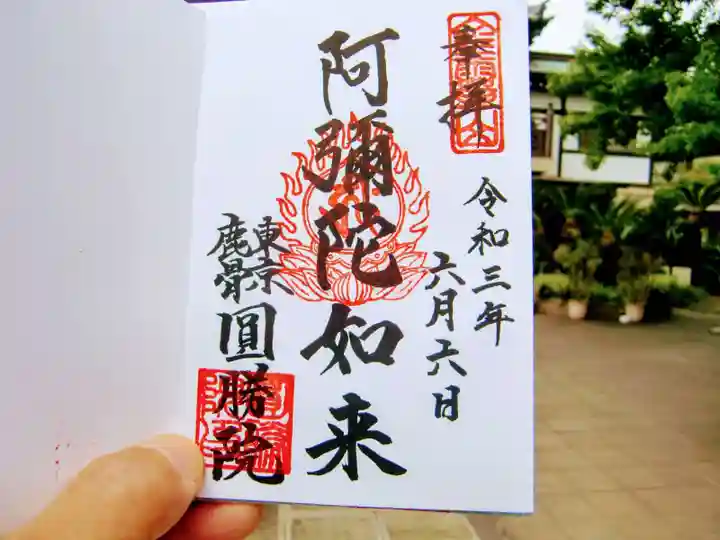 奉拝
令和三年
六月六日
阿彌陀如来
東京
鹿骨
圓勝院